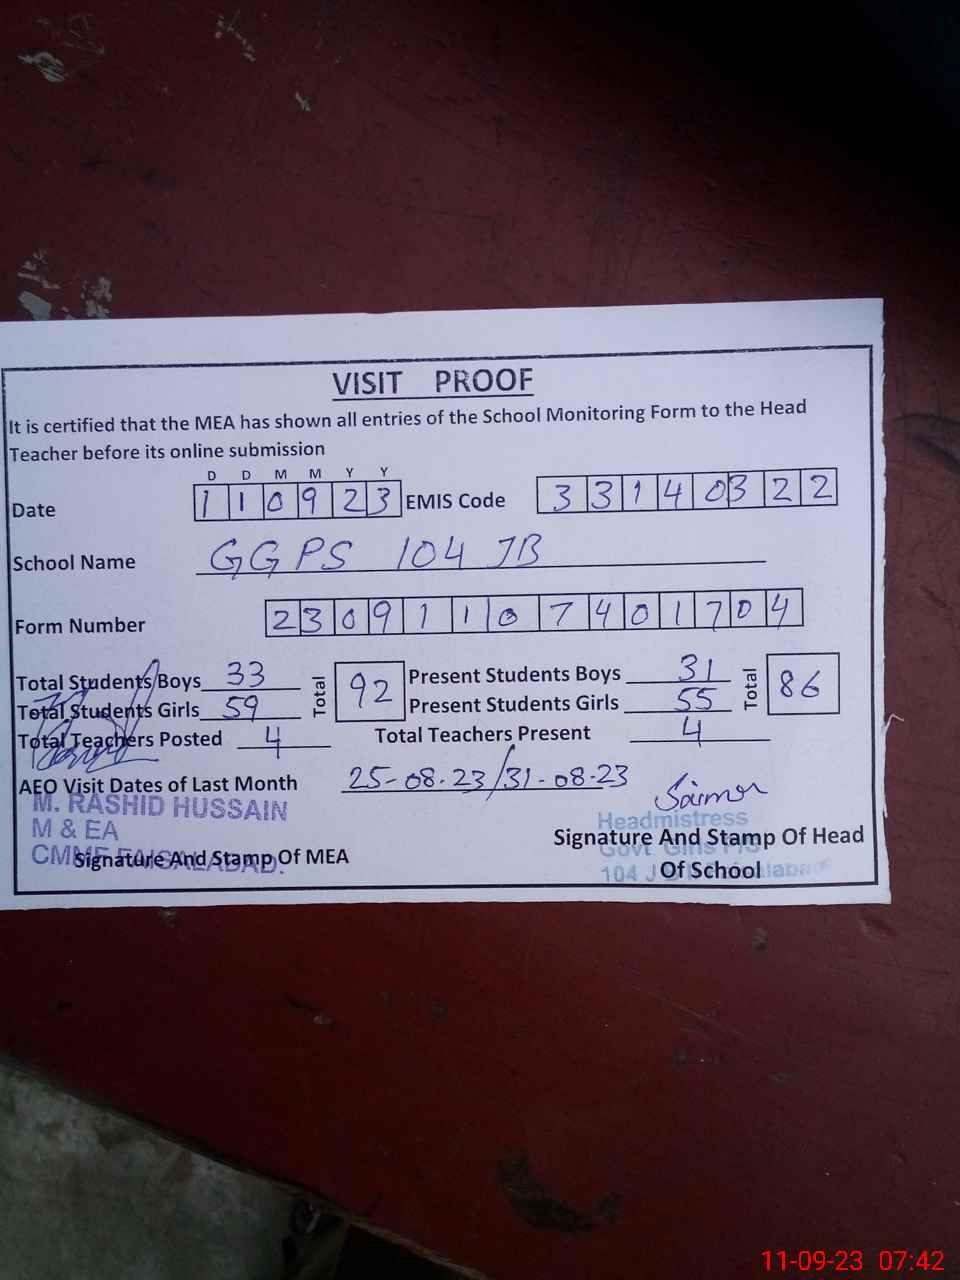 VISIT PROOF
It is certified that the MEA has shown all entries of the School Monitoring Form to the Head
Teacher before its online submission
D D M M Y Y
Date 1 1 0 9 2 3 EMIS Code 3 3 1 4 0 3 2 2
School Name GGPS 104 JB
Form Number 2 3 0 9 1 1 0 7 4 0 1 7 0 4
Total Students Boys 33 Total 92 Present Students Boys 31 Total 86
Total Students Girls 59 Present Students Girls 55
Total Teachers Posted 4 Total Teachers Present 4
AEO Visit Dates of Last Month 25-08-23/31-08-23
M. RASHID HUSSAIN
M & EA
CMMF FAISALABAD.
Signature And Stamp Of MEA
Headmistress
Signature And Stamp Of Head
Govt Girls P/S
Of School
104 J
11-09-23 07:42